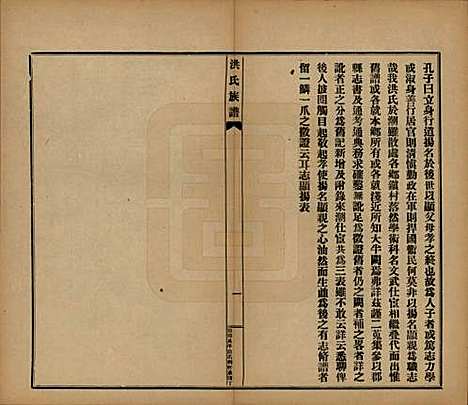 孔子曰立身行道揚名於後世以顯父母孝之終也故為人子者或篤志力學
或淑身善行居官則清慎勤政在軍則捍國衛民何莫非以揚名顯親為職志
哉我洪氏於潮雖散處各鄉鎮村落然學術科名文武仕宦相繼疊代而出惟
舊譜或各就本鄉所有或各就淺近所知大牛闕焉弗詳茲謹一一蒐集參以郡
縣志書及通考通典務求確鑿無訛足為徵證舊者仍之闕者補之畧者詳之
訛者正之分為舊記新增及附錄來潮仕宦共為三表雖不敢云詳云悉聊俾
後人披閱觸目敬起孝使揚名顯親之心油然而生庶為後之有志脩譜者
留一鱗一爪之徵證云耳志顯揚表
洪氏族譜
一